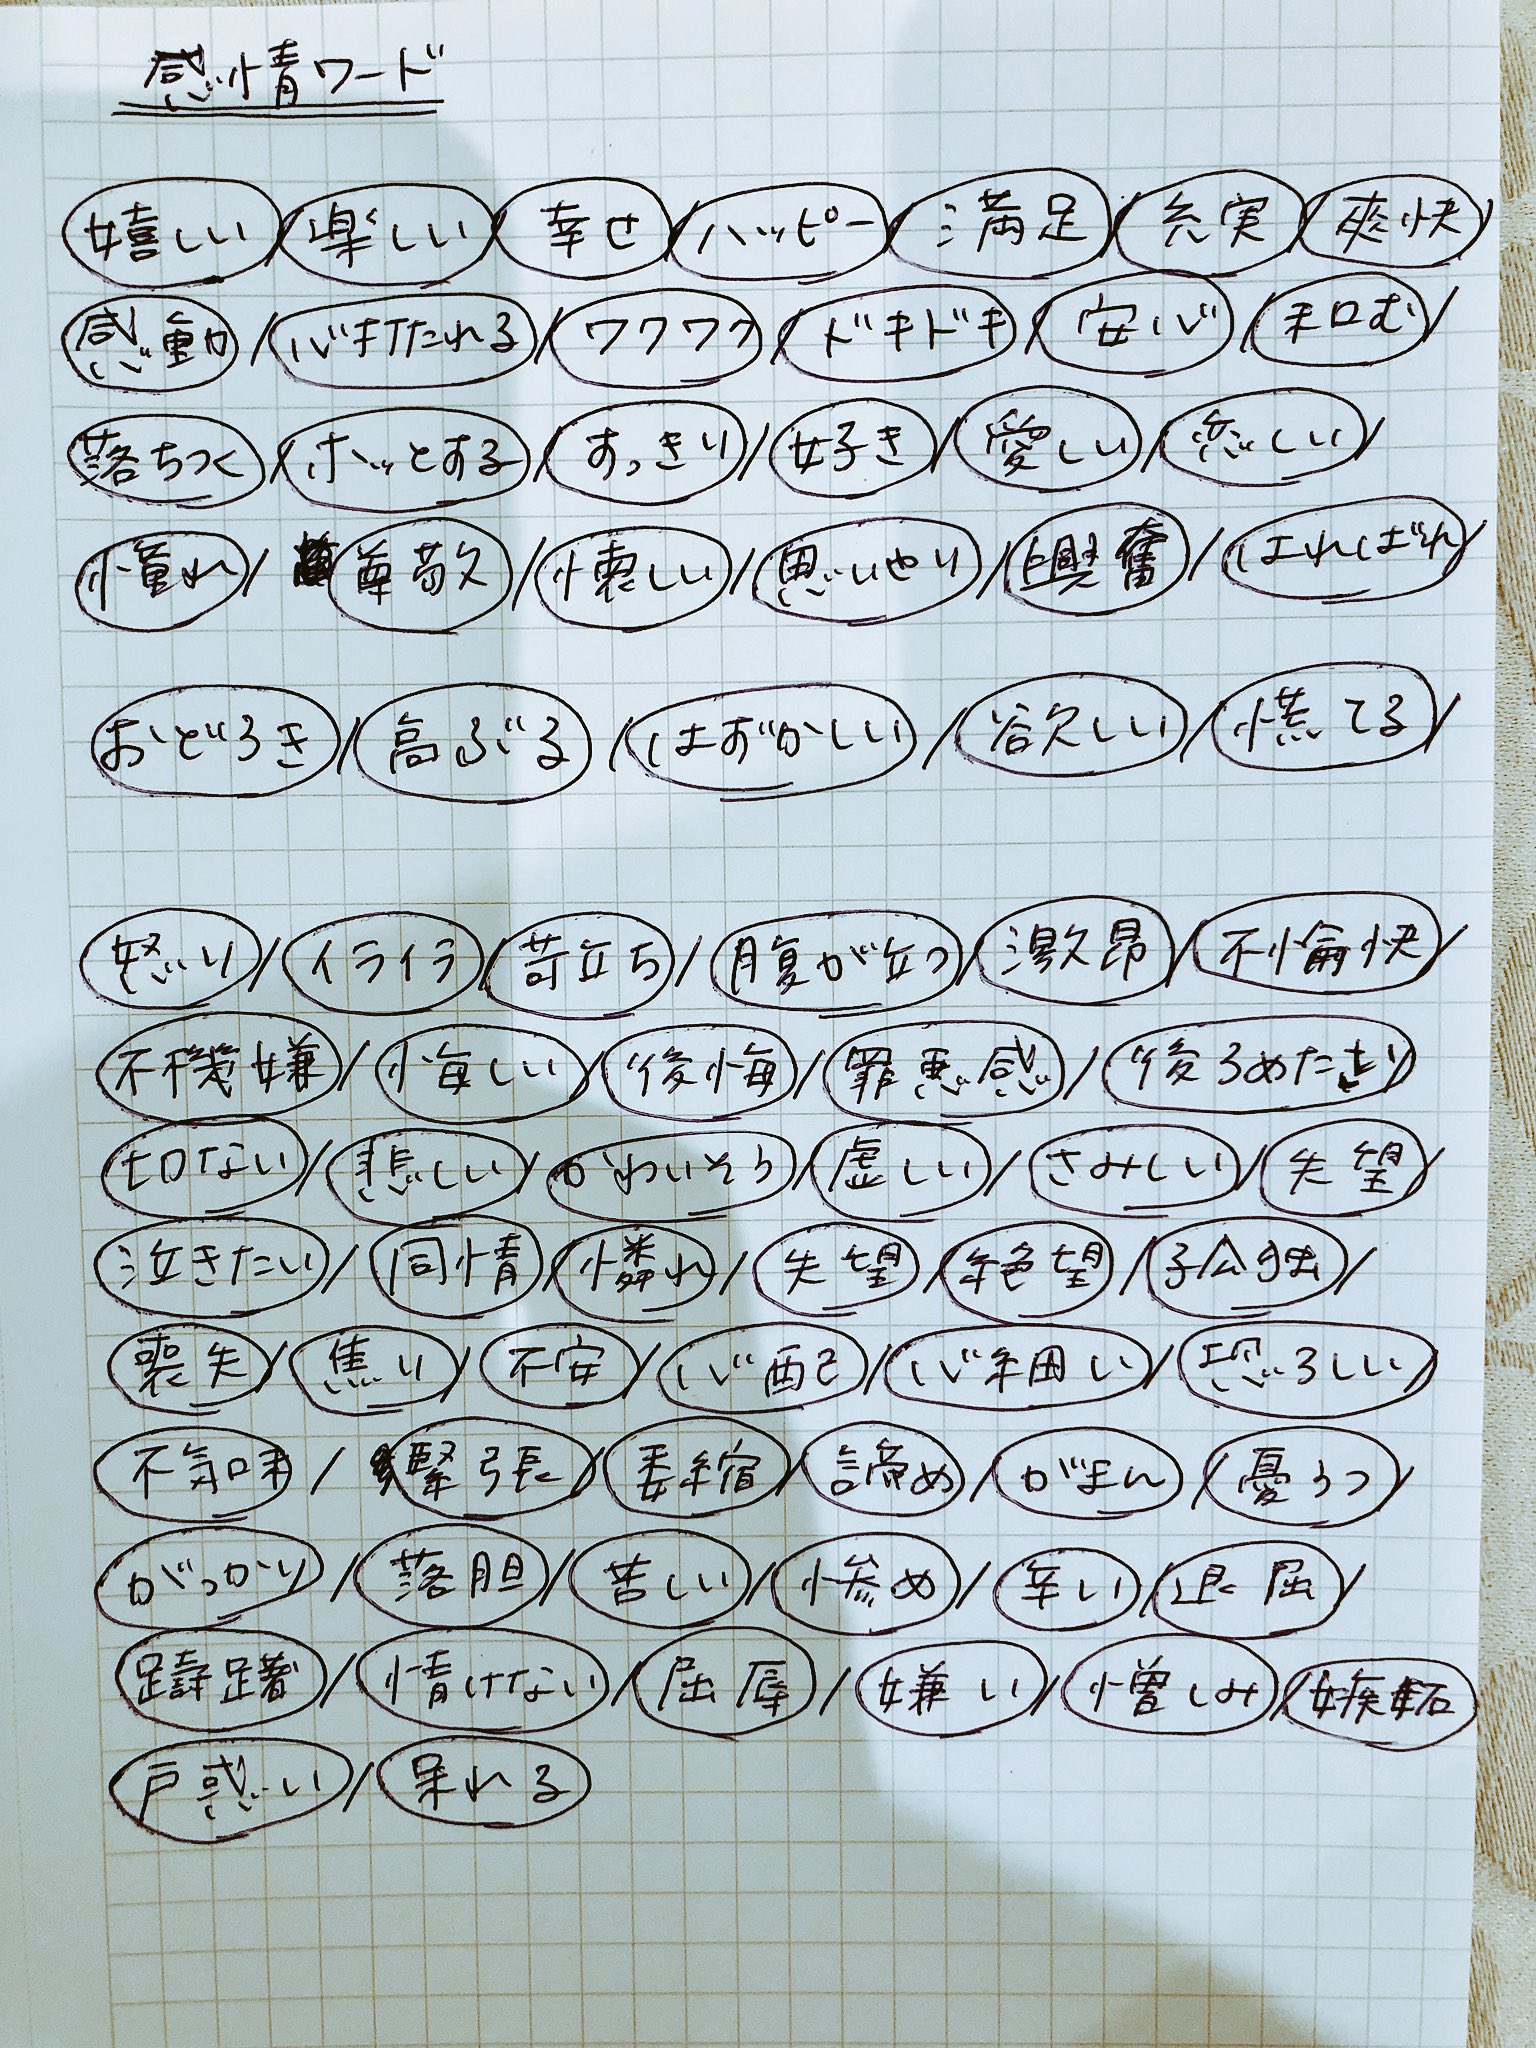 感情ワード
嬉しい/楽しい/幸せ/ハッピー/満足/充実/爽快/
感動/心打たれる/ワクワク/ドキドキ/安心/和む/
落ちつく/ホッとする/すっきり/好き/愛しい/恋しい/
憧れ/尊敬/懐しい/思いやり/興奮/はればれ/
おどろき/高ぶる/はずかしい/欲しい/慌てる/
怒り/イライラ/苛立ち/腹が立つ/激昂/不愉快/
不機嫌/悔しい/後悔/罪悪感/後ろめたさ/
切ない/悲しい/かわいそう/虚しい/さみしい/失望/
泣きたい/同情/憐れ/失望/絶望/孤独/
喪失/焦り/不安/心配/心細い/恐ろしい/
不気味/緊張/委縮/諦め/がまん/憂うつ/
がっかり/落胆/苦しい/惨め/辛い/退屈/
躊躇/情けない/屈辱/嫌い/憎しみ/嫉妬
戸惑い/呆れる